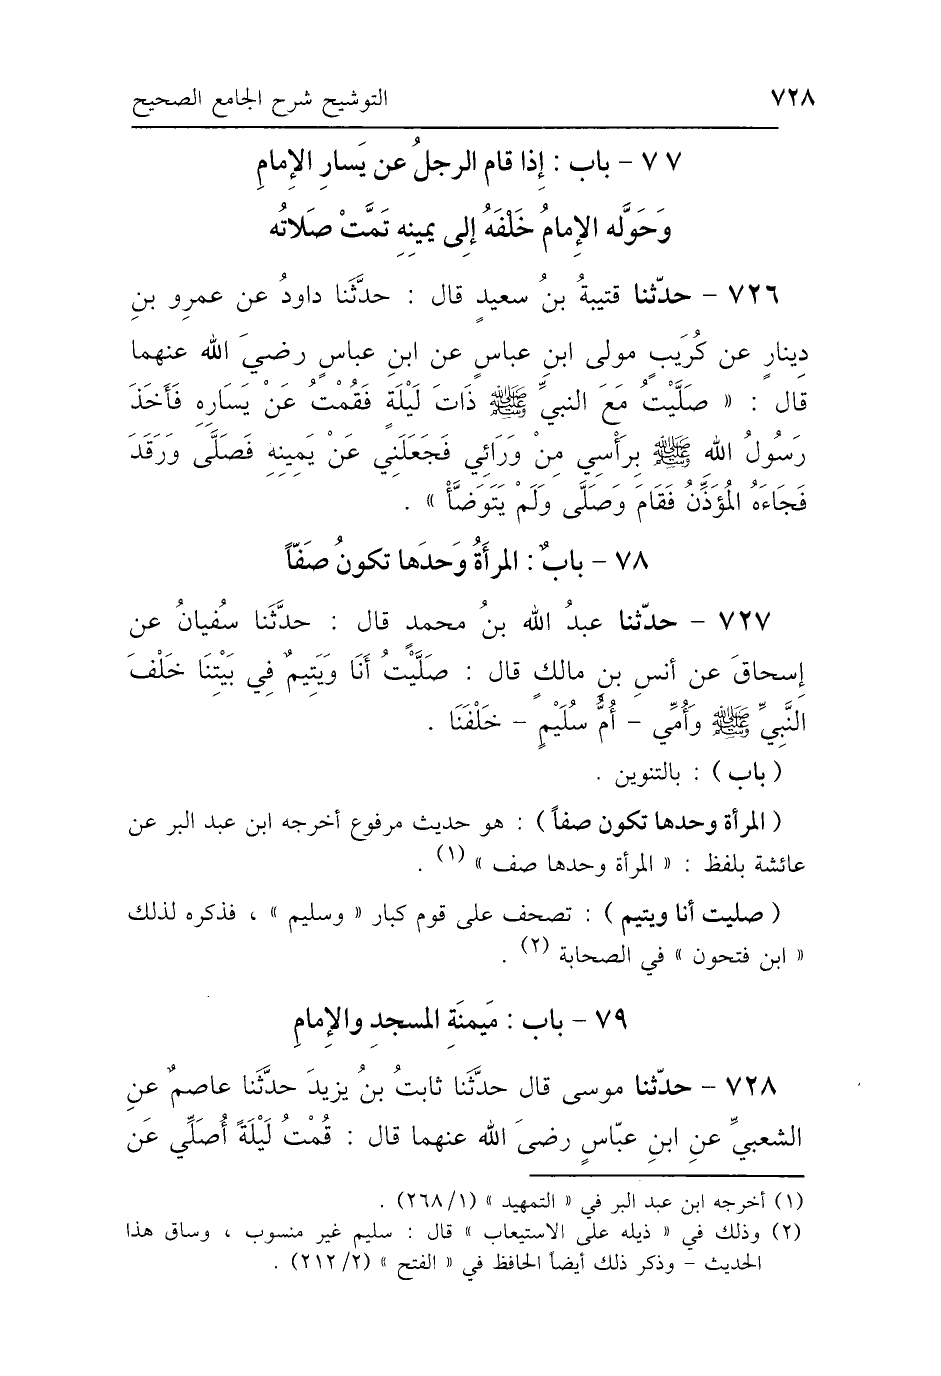 ٧٢٨ التوشيح شرح الجامع الصحيح
٧٧ - باب : إِذا قام الرجلُ عن يَسارِ الإِمامِ
وَحَوَّله الإِمامُ خَلْفَهُ إِلى يمينِهِ تَمَّتْ صَلاتُه
٧٢٦ - حدّثنا قتيبةُ بنُ سعيدٍ قال : حدَّثَنا داودُ عن عمرو بنِ
دِينارٍ عن كُرَيبٍ مولى ابنِ عباسٍ عن ابنِ عباسٍ رضيَ الله عنهما
قال : « صَلَّيْتُ مَعَ النبيِّ ﷺ ذَاتَ لَيْلَةٍ فَقُمْتُ عَنْ يَسَارِهِ فَأَخَذَ
رَسُولُ الله ﷺ بِرَأْسِي مِنْ وَرَائِي فَجَعَلَنِي عَنْ يَمِينِهِ فَصَلَّى وَرَقَدَ
فَجَاءَهُ المُؤَذِّنُ فَقَامَ وَصَلَّى وَلَمْ يَتَوَضَّأْ » .
٧٨ - بابٌ : المرأَةُ وَحدَها تكونُ صفّاً
٧٢٧ - حدّثنا عبدُ الله بنُ محمدٍ قال : حدَّثَنا سُفيانُ عن
إِسحاقَ عن أنسِ بنِ مالكٍ قال : صَلَّيْتُ أَنَا وَيَتِيمٌ فِي بَيْتِنَا خَلْفَ
النَّبِيِّ ﷺ وَأُمِّي - أُمُّ سُلَيْمٍ - خَلْفَنَا .
( باب ) : بالتنوين .
( المرأة وحدها تكون صفاً ) : هو حديث مرفوع أخرجه ابن عبد البر عن
عائشة بلفظ : « المرأة وحدها صف » (١) .
( صليت أنا ويتيم ) : تصحف على قوم كبار « وسليم » ، فذكره لذلك
« ابن فتحون » في الصحابة (٢) .
٧٩ - باب : مَيمنَةِ المسجدِ والإِمامِ
٧٢٨ - حدّثنا موسى قال حدَّثَنا ثابتُ بنُ يزيدَ حدَّثَنا عاصمٌ عنِ
الشعبيِّ عنِ ابنِ عبّاسٍ رضيَ الله عنهما قال : قُمْتُ لَيْلَةً أُصَلِّي عَن
(١) أخرجه ابن عبد البر في « التمهيد » (٢٦٨/١) .
(٢) وذلك في « ذيله على الاستيعاب » قال : سليم غير منسوب ، وساق هذا
الحديث - وذكر ذلك أيضاً الحافظ في « الفتح » (٢١٢/٢) .